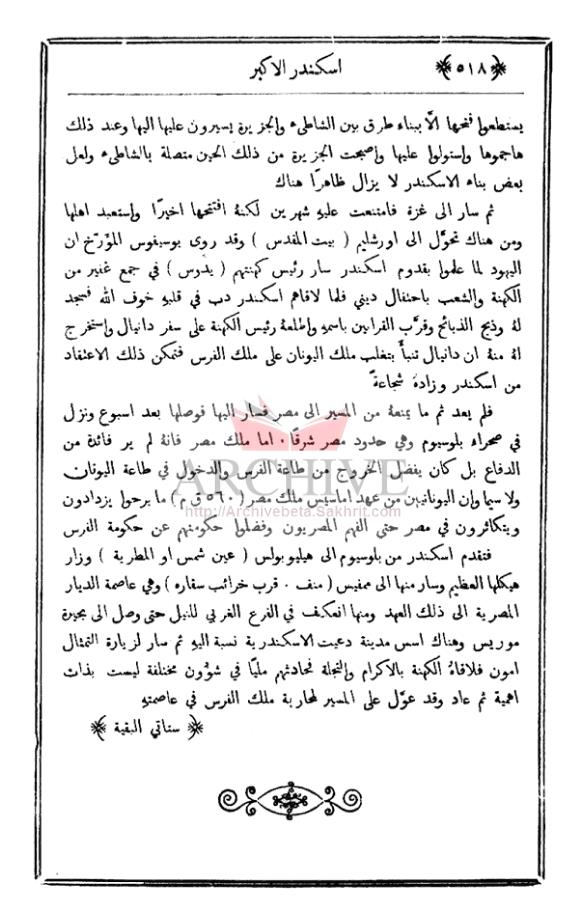 اسكندر الاكبر ﴿ ٥١٨ ﴾
يستطعوا فتحها الّا ببناء طرق بين الشاطىء والجزيرة يسيرون عليها اليها وعند ذلك
هاجموها واستولوا عليها واصبحت الجزيرة من ذلك الحين متصلة بالشاطىء ولعل
بعض بناء الاسكندر لا يزال ظاهرًا هناك
ثم سار الى غزة فامتنعت عليهِ شهرين لكنهُ افتتحها اخيرًا واستعبد اهلها
ومن هناك تحوَّل الى اورشليم ( بيت المقدس ) وقد روى يوسيفوس المؤرّخ ان
اليهود لما علموا بقدوم اسكندر سار رئيس كهنتهم ( يدّرس ) في جمع غفير من
الكهنة والشعب باحتفال ديني فلما لاقاهم اسكندر دب في قلبهِ خوف الله فسجد
لهُ وذبح الذبائح وقرَّب القرابين باسمهِ واطلعهُ رئيس الكهنة على سفر دانيال واستخرج
لهُ منهُ ان دانيال تنبأ بتغلب ملك اليونان على ملك الفرس فتمكن ذلك الاعتقاد
من اسكندر وزادهُ شجاعةً
فلم يعد ثم ما يمنعهُ من المسير الى مصر فسار اليها فوصلها بعد اسبوع ونزل
في صحراء بلوسيوم وهي حدود مصر شرقًا ٠ اما ملك مصر فانهُ لم ير فائدة من
الدفاع بل كان يفضل الخروج من طاعة الفرس والدخول في طاعة اليونان
ولا سيما وان اليونانيين من عهد اماسيس ملك مصر ( ٥٦٠ ق م ) ما برحوا يزدادون
ويتكاثرون في مصر حتى الفهم المصريون وفضلوا حكومتهم عن حكومة الفرس
فتقدم اسكندر من بلوسيوم الى هيليوبولس ( عين شمس او المطرية ) وزار
هيكلها العظيم وسار منها الى ممفيس ( منف ٠ قرب خرائب سقاره ) وهي عاصمة الديار
المصرية الى ذلك العهد ومنها انعكف في الفرع الغربي للنيل حتى وصل الى بحيرة
موريس وهناك اسس مدينة دعيت الاسكندرية نسبة اليهِ ثم سار لزيارة التمثال
امون فلاقاهُ الكهنة بالاكرام والتجلة فحادثهم مليًا في شؤون مختلفة ليست بذات
اهمية ثم عاد وقد عوّل على المسير لمحاربة ملك الفرس في عاصمتهِ
﴿ ستاتي البقية ﴾
ARCHIVE
http://Archivebeta.Sakhrit.com